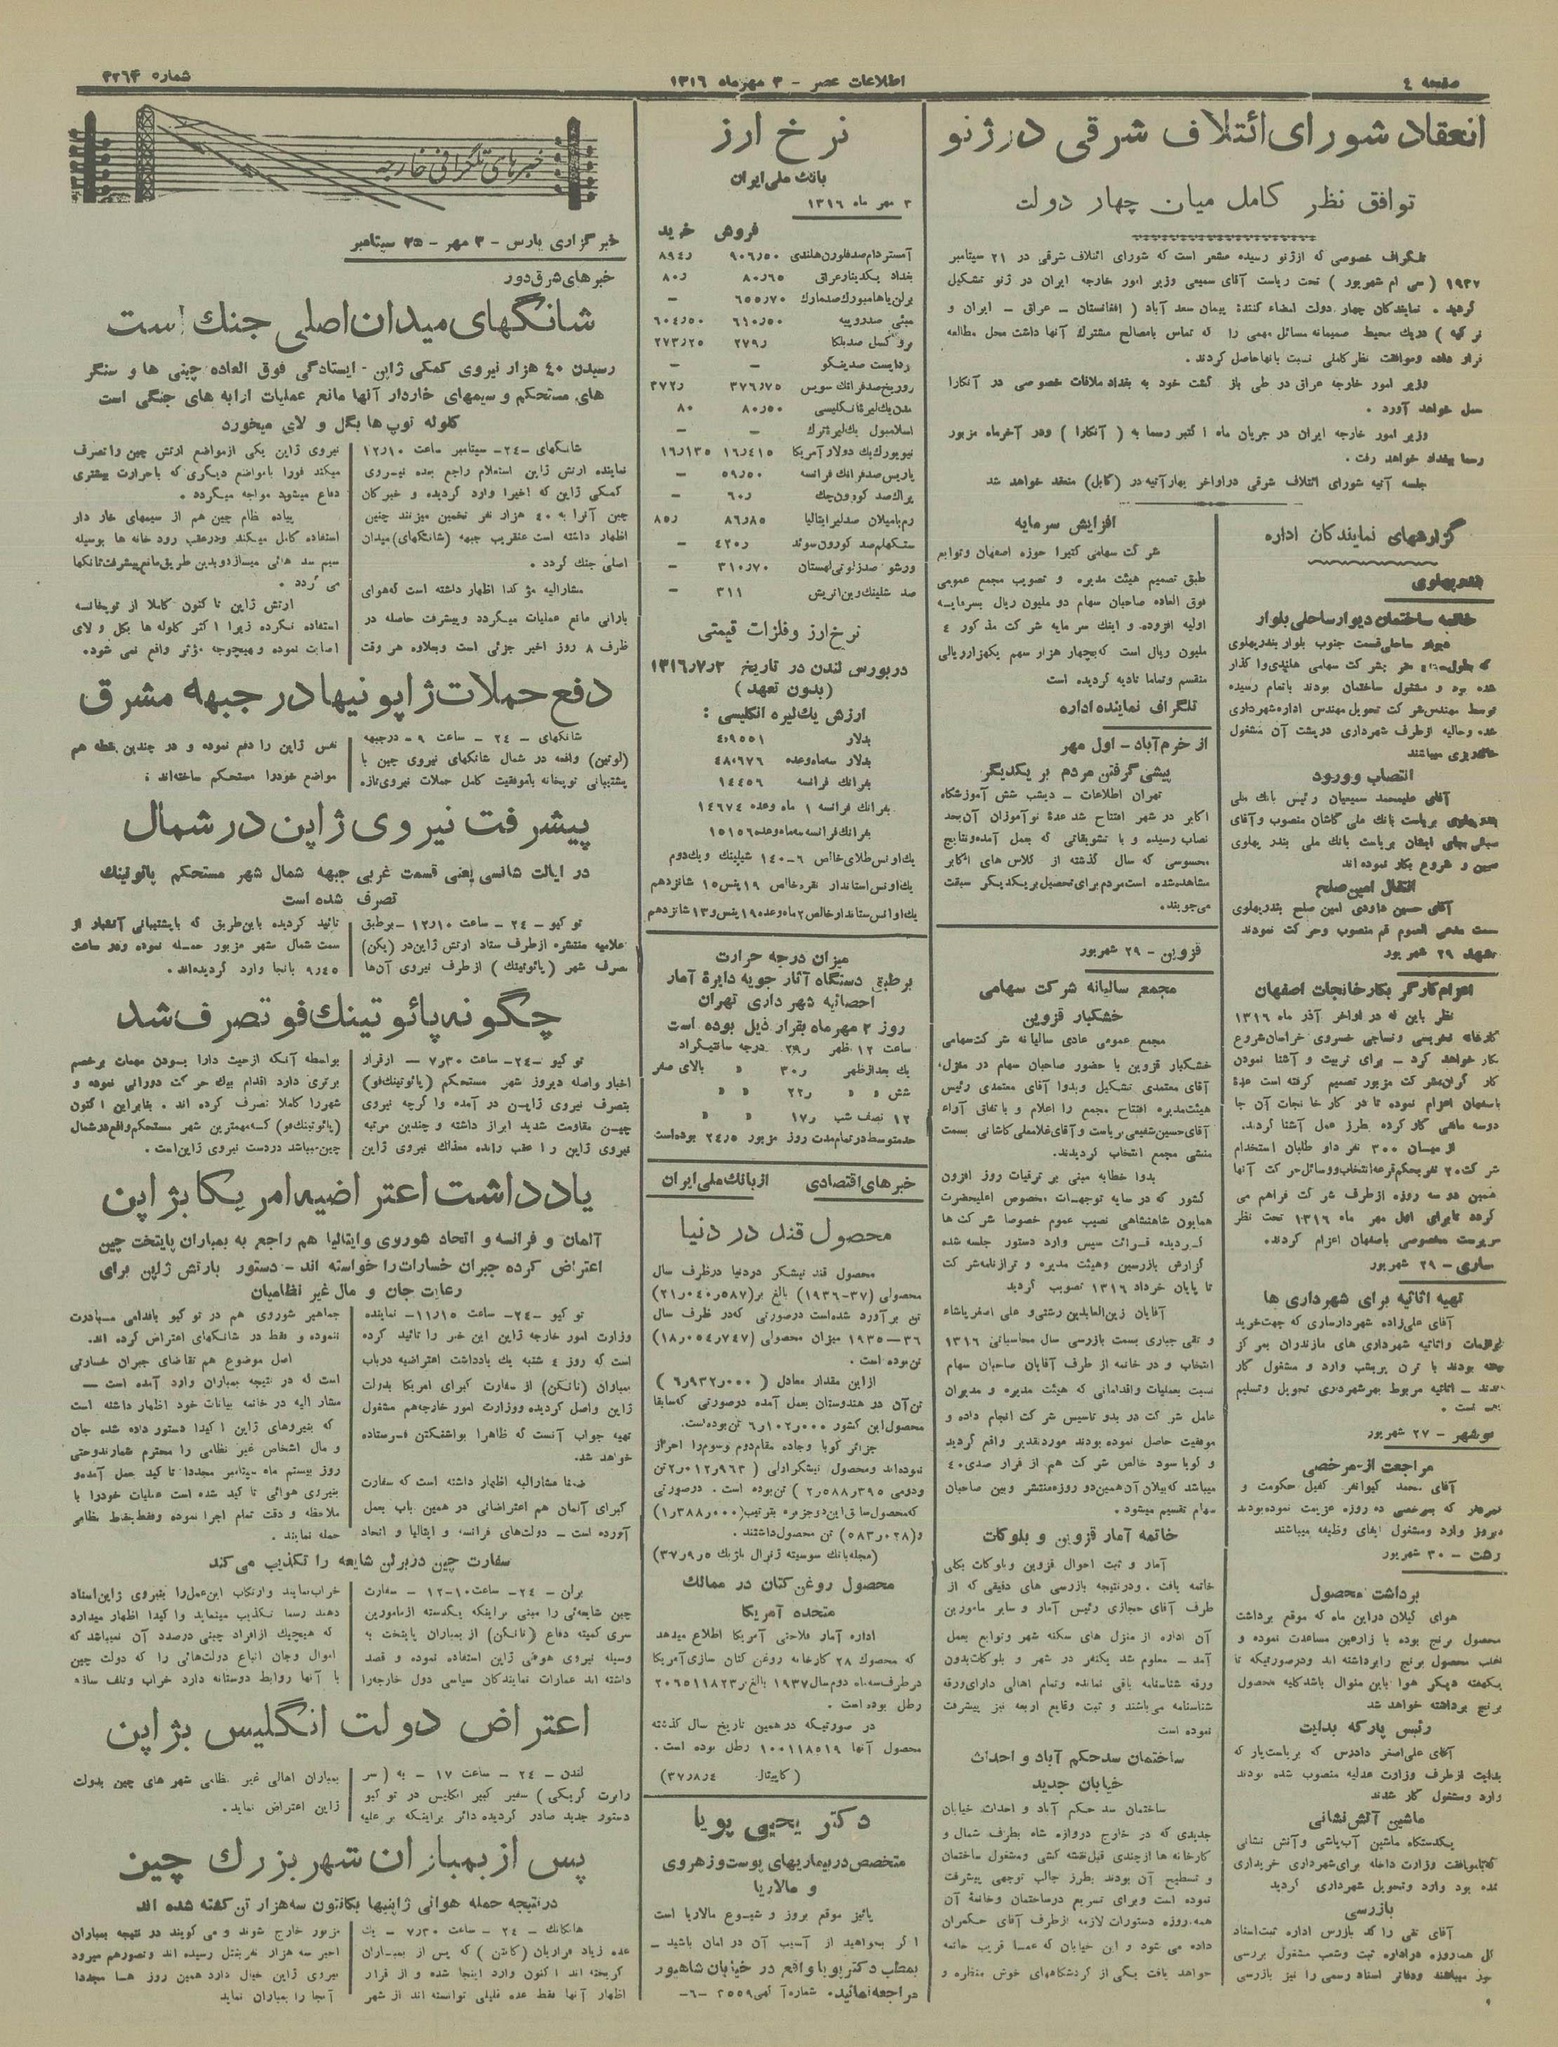 صفحه ٤
اطلاعات عصر - ٣ مهرماه ١٣١٦
شماره ٣٢٦٣
انعقاد شورای ائتلاف شرقی در ژنو
توافق نظر کامل میان چهار دولت
تلگراف خصوصی که از ژنو رسیده مشعر است که شورای ائتلاف شرقی در ٢١ سپتامبر
١٩٣٧ ( سی ام شهریور ) تحت ریاست آقای سمیعی وزیر امور خارجه ایران در ژنو تشکیل
گردید . نمایندگان چهار دولت امضاء کنندۀ پیمان سعد آباد ( افغانستان - عراق - ایران و
ترکیه ) در یک محیط صمیمانه مسائل مهمی را که تماس با مصالح مشترک آنها داشت محل مطالعه
قرار داده و موافقت نظر کاملی نسبت بانها حاصل کردند .
وزیر امور خارجه عراق در طی باز گشت خود به بغداد ملاقات خصوصی در آنکارا
بعمل خواهد آورد .
وزیر امور خارجه ایران در جریان ماه اکتبر رسما به ( آنکارا ) ودر آخرماه مزبور
رسما ببغداد خواهد رفت .
جلسه آتیه شورای ائتلاف شرقی در اواخر بهار آتیه در (کابل) منعقد خواهد شد
گزارشهای نمایندگان اداره
بندرپهلوی
خاتمه ساختمان دیوار ساحلی بلوار
دیوار ساحلی قسمت جنوب بلوار بندرپهلوی
شده بود و مشغول ساختمان بودند باتمام رسیده
توسط مهندس شرکت تحویل مهندس اداره شهرداری
شده وحالیه از طرف شهرداری در پشت آن مشغول
خاکریزی میباشند
انتصاب وورود
آقای علیمحمد سمیعیان رئیس بانک ملی
بندرپهلوی بریاست بانک ملی کاشان منصوب و آقای
معین و شروع بکار نموده اند
انتقال امین صلح
آقای حسین داودی امین صلح بندرپهلوی
بسمت مدعی العموم قم منصوب وحرکت نمودند
مشهد ٢٩ شهریور
اعزام کارگر بکارخانجات اصفهان
نظر باین که در اواخر آذر ماه ١٣١٦
کارخانه نخریسی ونساجی خسروی خراسان شروع
بکار خواهد کرد - برای تربیت و آشنا نمودن
کارگران شرکت مزبور تصمیم گرفته است عدۀ
باصفهان اعزام نموده تا در کارخانجات آن جا
دوسه ماهی کار کرده بطرز عمل آشنا گردند.
از میان ٣٠٠ نفر داو طلبان استخدام
شرکت ٢٠ نفر بحکم قرعه انتخاب ووسائل حرکت آنها
همین دو سه روزه از طرف شرکت فراهم می
گردد تا برای اول مهر ماه ١٣١٦ تحت نظر
سرپرست مخصوصی باصفهان اعزام گردند.
ساری - ٢٩ شهریور
تهیه اثاثیه برای شهرداری ها
آقای علیزاده شهردار ساری که جهت خرید
لوازمات واثاثیه شهرداری های مازندران بمرکز
رفته بودند با ترن پریشب وارد و مشغول کار
شدند - اثاثیه مربوط بهر شهرداری تحویل وتسلیم
شده است .
نوشهر - ٢٧ شهریور
مراجعت از مرخصی
آقای محمد کیوانفر کفیل حکومت و
شهردار که بمرخصی ده روزه عزیمت نموده بودند
دیروز وارد ومشغول ایفای وظیفه میباشند
رشت - ٣٠ شهریور
برداشت محصول
هوای گیلان در این ماه که موقع برداشت
محصول برنج بوده با زارعین مساعدت نموده و
اغلب محصول برنج را برداشته اند ودرصورتیکه تا
یکهفته دیگر هوا باین منوال باشد کلیه محصول
برنج برداشته خواهد شد
رئیس پارکه بدایت
آقای علی اصغر دادرس که بریاست پارکه
بدایت از طرف وزارت عدلیه منصوب شده بودند
وارد ومشغول کار شدند
ماشین آتش نشانی
یکدستگاه ماشین آب پاشی و آتش نشانی
که با موافقت وزارت داخله برای شهرداری خریداری
شده بود وارد وتحویل شهرداری گردید
بازرسی
آقای تقی راکد بازرس اداره ثبت اسناد
نیز میباشند ودفاتر اسناد رسمی را نیز بازرسی
افزایش سرمایه
شرکت سهامی کتیرا حوزه اصفهان وتوابع
طبق تصمیم هیئت مدیره و تصویب مجمع عمومی
فوق العاده صاحبان سهام دو ملیون ریال بسرمایه
اولیه افزوده و اینک سرمایه شرکت مذکور ٤
ملیون ریال است که بچهار هزار سهم یکهزار ریالی
منقسم وتماما تادیه گردیده است
تلگراف نماینده اداره
از خرم آباد - اول مهر
پیشی گرفتن مردم بر یکدیگر
تهران اطلاعات - دیشب شش آموزشگاه
اکابر در شهر افتتاح شد عدۀ نو آموزان آن بحد
نصاب رسیده و با تشویقاتی که بعمل آمده ونتایج
محسوسی که سال گذشته از کلاس های اکابر
مشاهده شده است مردم برای تحصیل بر یکدیگر سبقت
می جویند.
قزوین - ٢٩ شهریور
مجمع سالیانه شرکت سهامی
خشکبار قزوین
مجمع عمومی عادی سالیانه شرکت سهامی
خشکبار قزوین با حضور صاحبان سهام در منزل
آقای معتمدی تشکیل وبدوا آقای معتمدی رئیس
هیئت مدیره افتتاح مجمع را اعلام و باتفاق آراء
آقای حسین شفیعی بریاست و آقای غلامعلی کاشانی بسمت
منشی مجمع انتخاب گردیدند.
بدوا خطابه مبنی بر ترقیات روز افزون
کشور که در سایه توجهات مخصوص اعلیحضرت
همایون شاهنشاهی نصیب عموم خصوصا شرکت ها
گردیده قرائت سپس وارد دستور جلسه شده
گزارش بازرسین وهیئت مدیره و ترازنامه شرکت
تا پایان خرداد ١٣١٦ تصویب گردید
آقایان زین العابدین رشتی و علی اصغر پاشاء
و تقی جباری بسمت بازرسی سال محاسباتی ١٣١٦
انتخاب و در خاتمه از طرف آقایان صاحبان سهام
نسبت بعملیات واقداماتی که هیئت مدیره و مدیران
عامل شرکت در بدو تاسیس شرکت انجام داده و
موفقیت حاصل نموده بودند مورد تقدیر واقع گردید
و گویا سود خالص شرکت هم از قرار صدی ٤٠
میباشد که بیلان آن همین دو روزه منتشر وبین صاحبان
سهام تقسیم میشود .
خاتمه آمار قزوین و بلوکات
آمار و ثبت احوال قزوین وبلوکات بکلی
خاتمه یافت . ودر نتیجه بازرسی های دقیقی که از
طرف آقای حجازی رئیس آمار و سایر مامورین
آن اداره از منزل های سکنه شهر وتوابع بعمل
آمد - معلوم شد یکنفر در شهر و بلوکات بدون
ورقه شناسنامه باقی نمانده وتمام اهالی دارای ورقه
شناسنامه می باشند و ثبت وقایع اربعه نیز پیشرفت
نموده است
ساختمان سد حکم آباد و احداث
خیابان جدید
ساختمان سد حکم آباد و احداث خیابان
جدیدی که در خارج دروازه شاه بطرف شمال و
کارخانه ها از چندی قبل نقشه کشی ومشغول ساختمان
و تسطیح آن بودند بطرز جالب توجهی پیشرفت
نموده است وبرای تسریع در ساختمان وخاتمۀ آن
همه روزه دستورات لازمه از طرف آقای حکمران
داده می شود و این خیابان که عنقریب خاتمه
خواهد یافت یکی از گردشگاههای خوش منظره و
نرخ ارز
بانک ملی ایران
٣ مهر ماه ١٣١٦
فروش خرید
آمستردام صد فلورن هلندی ٩٠٦٫٥٠ ٨٩٤٫
بغداد یکدینار عراق ٨٠٫٦٥ ٨٠٫
برلن یا هامبورک صد مارک ٦٥٥٫٧٠ -
بمبئی صد روپیه ٦١٠٫٥٠ ٦٠٤٫٥٠
بروکسل صد بلگا ٢٧٩٫ ٢٧٣٫٢٥
بوداپست صد پنگو - -
زوریخ صد فرانک سویس ٣٧٦٫٧٥ ٣٧٢٫
لندن یک لیره انگلیسی ٨٠٫٥٠ ٨٠
اسلامبول یک لیره ترک - -
نیویورک یک دولار آمریکا ١٦٫٤١٥ ١٦٫١٣٥
پاریس صد فرانک فرانسه ٥٩٫٥٠ -
پراک صد کورون چک ٦٠٫ -
رم یا میلان صد لیر ایتالیا ٨٦٫٨٥ ٨٥٫
ستکهلم صد کورون سوئد ٤٢٠٫ -
ورشو صد زلوتی لهستان ٣١٠٫٧٠ -
صد شلینک وین اتریش ٣١١ -
نرخ ارز وفلزات قیمتی
در بورس لندن در تاریخ ١٣١٦٫٧٫٢
( بدون تعهد )
ارزش یک لیره انگلیسی :
بدلار ٤٫٩٥٥١
بدلار سه ماه وعده ٤٫٨٠٦٧٦
بفرانک فرانسه ١٤٤٥٦
بفرانک فرانسه ١ ماه وعده ١٤٦٧٤
بفرانک فرانسه سه ماه وعده ١٥١٥٦
یک اونس طلای خالص ٦-١٤٠ شیلینک ویک دوم
یک اونس استاندار نقره خالص ١٩ پنس ١٥ شانزدهم
یک اوانس ستاندار خالص ٢ ماه وعده ١٩ پنس و ١٣ شانزدهم
میزان درجه حرارت
بر طبق دستگاه آثار جویه دایرۀ آمار
احصائیه شهرداری تهران
روز ٢ مهرماه بقرار ذیل بوده است
ساعت ١٢ ظهر ٢٩٫ درجه سانتیگراد
یک بعد از ظهر ٣٠٫ » بالای صفر
شش » » ٢٢٫ » »
١٢ نصف شب ١٧٫ » »
حد متوسط در تمام مدت روز مزبور ٢٤٫٥ بوده است
خبرهای اقتصادی
از بانک ملی ایران
محصول قند در دنیا
محصول قند نیشکر در دنیا در ظرف سال
محصولی (٣٧-١٩٣٦) بالغ بر (٢١٫٠٤٠٫٥٨٧)
تن برآورد شده است در صورتی که در ظرف سال
٣٦-١٩٣٥ میزان محصولی (١٨٫٠٥٤٫٧٤٧)
تن بوده است .
از این مقدار معادل ( ٦٫٩٣٢٫٠٠٠ )
تن آن در هندوستان بعمل آمده در صورتی که سابقا
محصول این کشور ٦٫١٠٢٫٠٠٠ تن بوده است.
جزائر کوبا وجاده مقام دوم وسوم را احراز
نموده اند ومحصول نیشکر اولی ( ٢٫٠١٢٫٩٦٣ تن
ودومی ٢٫٥٨٨٫٣٩٥ ) تن بوده است . در صورتی
که محصول سابق این دو جزیره بترتیب (١٫٣٨٨٫٠٠٠)
و (٥٨٣٫٠٢٨) تن محصول داشتند .
(مجله بانک سوسیته ژنرال بلژیک ٣٧٫٩٫٥)
محصول روغن کتان در ممالک
متحده آمریکا
اداره آمار فلاحتی آمریکا اطلاع میدهد
که محصول ٢٨ کارخانه روغن کتان سازی آمریکا
در ظرف سه ماه دوم سال ١٩٣٧ بالغ بر ٢٠٦٥١١٨٢٣
رطل بوده است .
در صورتیکه در همین تاریخ سال گذشته
محصول آنها ١٠٠١١٨٥١٩ رطل بوده است .
( کاپیتال ٣٧٫٨٫٤)
دکتر یحیی پویا
متخصص در بیماریهای پوست وزهروی
و مالاریا
پائیز موقع بروز و شیوع مالاریا است
اگر بخواهید از آسیب آن در امان باشید -
بمطب دکتر پویا واقع در خیابان شاهپور
مراجعه نمائید. شماره آگهی ٢٥٥٩ -٦-
خبرهای تلگرافی خارجه
خبرگزاری پارس - ٣ مهر - ٢٥ سپتامبر
خبرهای شرق دور
شانگهای میدان اصلی جنگ است
رسیدن ٤٠ هزار نیروی کمکی ژاپن - ایستادگی فوق العاده چینی ها و سنگر
های مستحکم و سیمهای خاردار آنها مانع عملیات ارابه های جنگی است
گلوله توپ ها بگل و لای میخورد
شانگهای -٢٤- سپتامبر ساعت ١٢٫١٠
نماینده ارتش ژاپن استعلام راجع بعده نیروی
کمکی ژاپن که اخیرا وارد گردیده و خبرگان
چین آنرا به ٤٠ هزار نفر تخمین میزنند چنین
اظهار داشته است عنقریب جبهه (شانگهای) میدان
اصلی جنگ گردد .
مشارالیه مؤکدا اظهار داشته است که هوای
بارانی مانع عملیات میگردد و پیشرفت حاصله در
ظرف ٨ روز اخیر جزئی است وبعلاوه هر وقت
نیروی ژاپن یکی از مواضع ارتش چین را تصرف
میکند فورا با مواضع دیگری که با حرارت بیشتری
دفاع میشود مواجه میگردد .
پیاده نظام چین هم از سیمهای خار دار
استفاده کامل میکند ودر عقب رود خانه ها بوسیله
سیم سد هائی میسازد وبدین طریق مانع پیشرفت تانکها
می گردد .
ارتش ژاپن تا کنون کاملا از توپخانه
استفاده نکرده زیرا اکثر گلوله ها بگل و لای
اصابت نموده و بهیچوجه مؤثر واقع نمی شود.
دفع حملات ژاپونیها در جبهه مشرق
شانگهای - ٢٤ - ساعت ٩ - در جبهه
(لوتین) واقعه در شمال شانگهای نیروی چین با
پشتیبانی توپخانه با موفقیت کامل حملات نیروی تازه
نفس ژاپن را دفع نموده و در چندین نقطه هم
مواضع خود را مستحکم ساخته اند .
پیشرفت نیروی ژاپن در شمال
در ایالت شانسی یعنی قسمت غربی جبهه شمال شهر مستحکم پائوتینک
تصرف شده است
توکیو - ٢٤ - ساعت ١٢٫١٠ - بر طبق
علامیه منتشره از طرف ستاد ارتش ژاپن در (پکن)
تصرف شهر (پائوتینک ) از طرف نیروی آنها
تائید گردیده باین طریق که با پشتیبانی آتشبار از
سمت شمال شهر مزبور حمله نموده ودر ساعت
٩٫٤٥ بانجا وارد گردیده اند.
چگونه پائوتینک فو تصرف شد
توکیو -٢٤- ساعت ٧٫٣٠ - از قرار
اخبار واصله دیروز شهر مستحکم (پائوتینک فو)
بتصرف نیروی ژاپن در آمده وا گرچه نیروی
چین مقاومت شدید ابراز داشته و چندین مرتبه
نیروی ژاپن را عقب رانده معذلک نیروی ژاپن
بواسطه آنکه از حیث دارا بودن مهمات بر خصم
برتری دارد اقدام بیک حرکت دورانی نموده و
شهر را کاملا تصرف کرده اند . بنابراین اکنون
(پائوتینک فو) که مهمترین شهر مستحکم واقع در شمال
چین میباشد در دست نیروی ژاپن است .
یادداشت اعتراضیه امریکا بژاپن
آلمان و فرانسه و اتحاد شوروی وایتالیا هم راجع به بمباران پایتخت چین
اعتراض کرده جبران خسارات را خواسته اند - دستور بارتش ژاپن برای
رعایت جان و مال غیر نظامیان
توکیو -٢٤- ساعت ١١٫١٥ - نماینده
وزارت امور خارجه ژاپن این خبر را تائید کرده
است که روز ٤ شنبه یک یادداشت اعتراضیه در باب
بمباران (نانکن) از سفارت کبرای امریکا بدولت
ژاپن واصل گردیده ووزارت امور خارجه هم مشغول
تهیه جواب آنست که ظاهرا بواشنگتن فرستاده
خواهد شد.
ضمنا مشارالیه اظهار داشته است که سفارت
کبرای آلمان هم اعتراضاتی در همین باب بعمل
آورده است - دولت های فرانسه و ایتالیا و اتحاد
جماهیر شوروی هم در توکیو باقدامی مبادرت
ننموده و فقط در شانگهای اعتراض کرده اند.
اصل موضوع هم تقاضای جبران خسارتی
است که در نتیجه بمباران وارد آمده است -
مشارالیه در خاتمه بیانات خود اظهار داشته است
که بنیروهای ژاپن اکیدا دستور داده شده جان
و مال اشخاص غیر نظامی را محترم شمارند وحتی
روز بیستم ماه سپتامبر مجددا تاکید بعمل آمده و
بنیروی هوائی تاکید شده است عملیات خود را با
ملاحظه و دقت تمام اجرا نموده وفقط بنقاط نظامی
حمله نمایند .
سفارت چین در برلن شایعه را تکذیب می کند
برلن - ٢٤ - ساعت ١٠-١٢ - سفارت
چین شایعه ئی را مبنی بر اینکه یکدسته از مامورین
سری کمیته دفاع (نانکن) از بمباران پایتخت به
وسیله نیروی هوائی ژاپن استفاده نموده و قصد
داشته اند عمارات نمایندگان سیاسی دول خارجه را
خراب نمایند وارتکاب این عمل را بنیروی ژاپن اسناد
دهند رسما تکذیب مینماید وا کیدا اظهار میدارد
که هیچیک از افراد چینی در صدد آن نمیباشد که
اموال وجان اتباع دولت هائی را که دولت چین
با آنها روابط دوستانه دارد خراب وتلف سازد
اعتراض دولت انگلیس بژاپن
لندن - ٢٤ - ساعت ١٧ - به ( سر
رابرت کریگی) سفیر کبیر انگلیس در توکیو
دستور جدید صادر گردیده دائر بر اینکه بر علیه
بمباران اهالی غیر نظامی شهر های چین بدولت
ژاپن اعتراض نماید.
پس از بمباران شهر بزرگ چین
در نتیجه حمله هوائی ژاپنیها بکانتون سه هزار تن کشته شده اند
هانکانک - ٢٤ - ساعت ٧٫٣٠ - یک
عده زیاد فراریان (کانتن ) که پس از بمباران
گریخته اند اکنون وارد اینجا شده و از قرار
اظهار آنها فقط عده قلیلی توانسته اند از شهر
مزبور خارج شوند و می گویند در نتیجه بمباران
اخیر سه هزار نفر بقتل رسیده اند وتصور هم میرود
نیروی ژاپن خیال دارد همین روز ها مجددا
آنجا را بمباران نماید